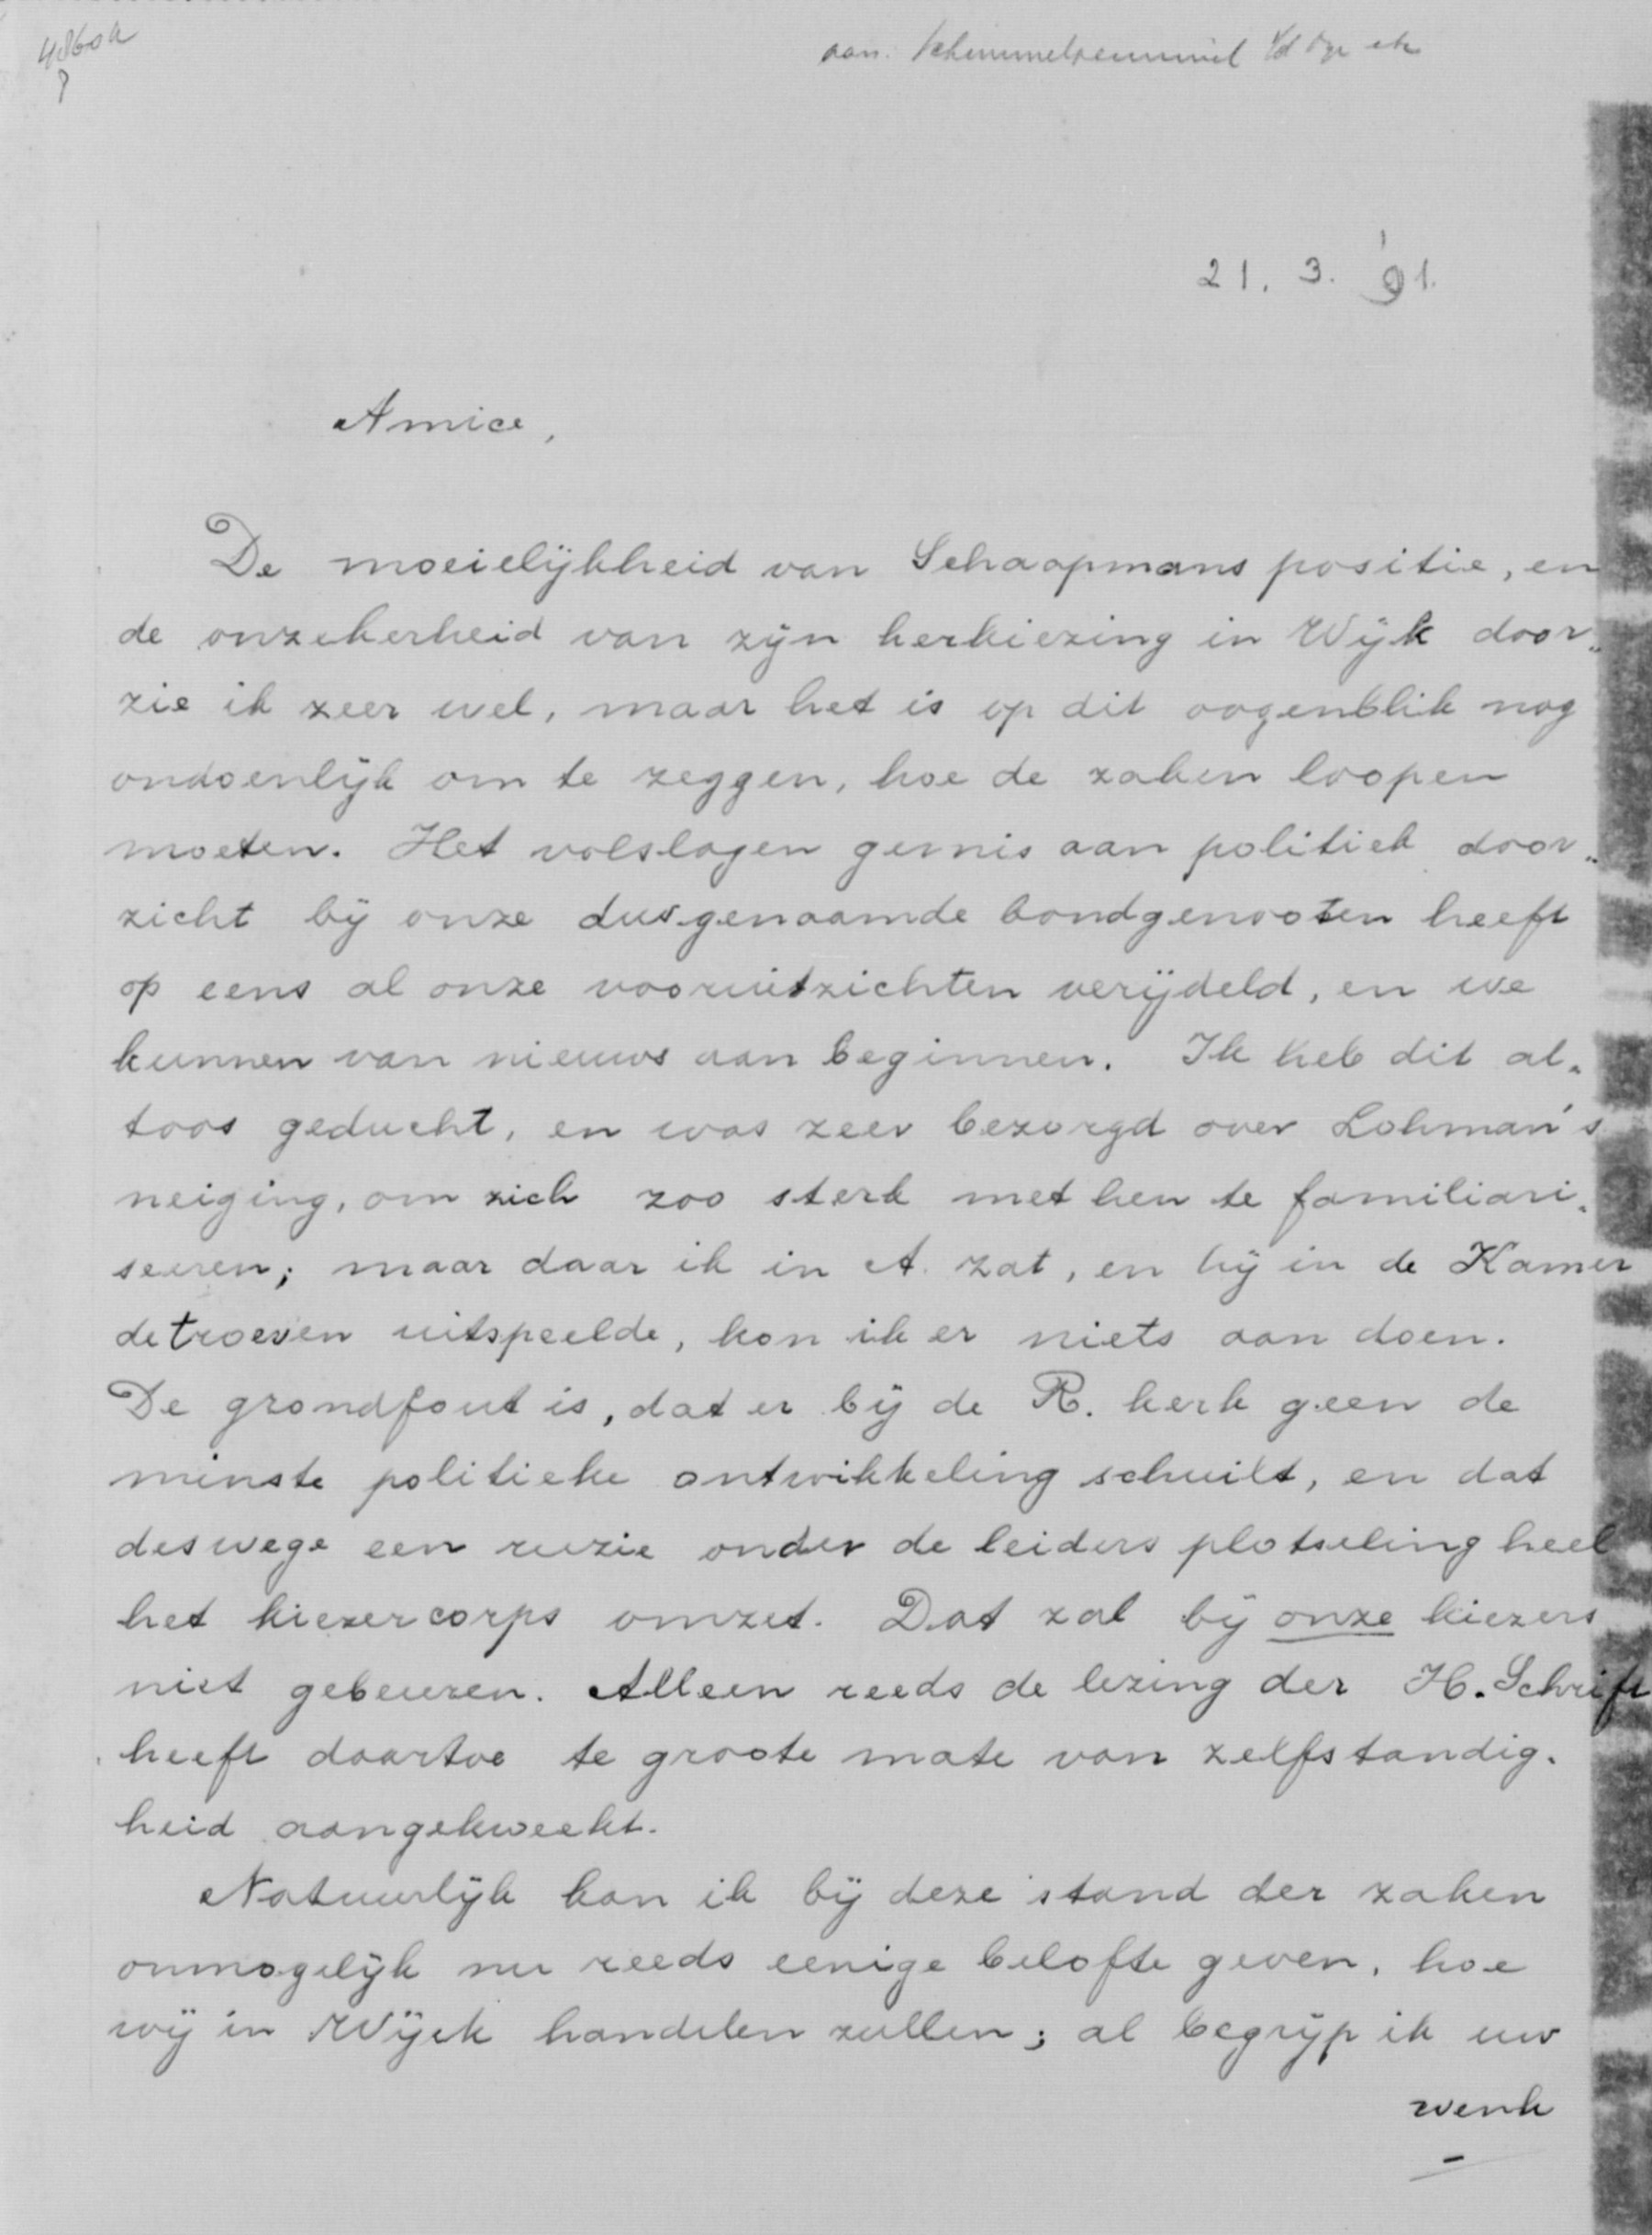 4860a
?
aan. Schimmelpenninck v/d Oye etc
21. 3. '91.
Amice,
De moeielijkheid van Schaapmans positie, en
de onzekerheid van zijn herkiezing in Wijk door„
zie ik zeer wel, maar het is op dit oogenblik nog
ondoenlijk om te zeggen, hoe de zaken loopen
moeten. Het volslagen gemis aan politiek door„
zicht bij onze dusgenaamde bondgenooten heeft
op eens al onze vooruitzichten verijdeld, en we
kunnen van nieuws aan beginnen. Ik heb dit al„
toos geducht, en was zeer bezorgd over Lohman's
neiging, om zich zoo sterk met hen te familiari„
seeren; maar daar ik in A. zat, en hij in de Kamer
de troeven uitspeelde, kon ik er niets aan doen.
De grondfout is, dat er bij de R. kerk geen de
minste politieke ontwikkeling schuilt, en dat
deswege een ruzie onder de leiders plotseling heel
het kiezercorps omzet. Dat zal bij onze kiezers
niet gebeuren. Alleen reeds de lezing der H. Schrift
heeft daartoe te groote mate van zelfstandig-
heid aangekweekt.
Natuurlijk kan ik bij deze stand der zaken
onmogelijk nu reeds eenige belofte geven, hoe
wij in Wijck handelen zullen; al begrijp ik uw
wenk